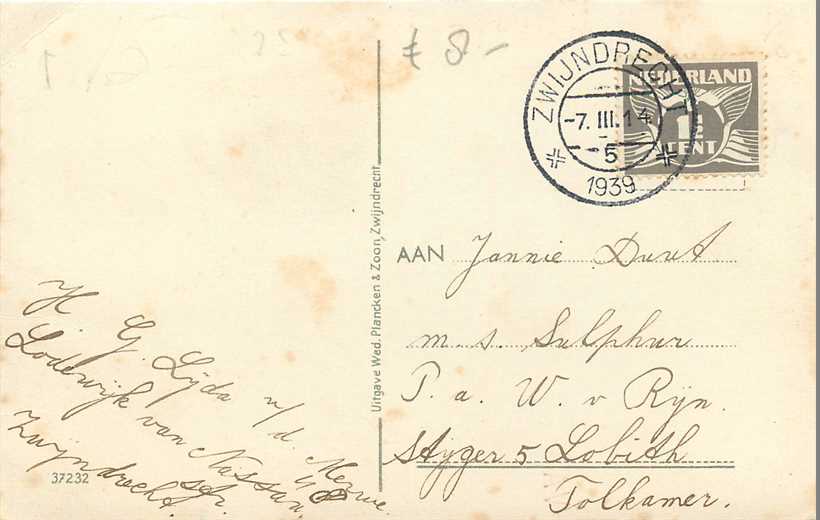 ƒ 8-
ZWIJNDRECHT
-7. III. 14
-5
1939
NEDERLAND
1½
CENT
AAN Jannie Duut
m. s. Sulphur
P. a. W. v Ryn.
Styger 5 Lobith
Tolkamer.
Uitgave Wed. Plancken & Zoon, Zwijndrecht
H. G. Lyda v/d. Merwe.
Lodewijk van Nassau
Zwijndrecht.
37232